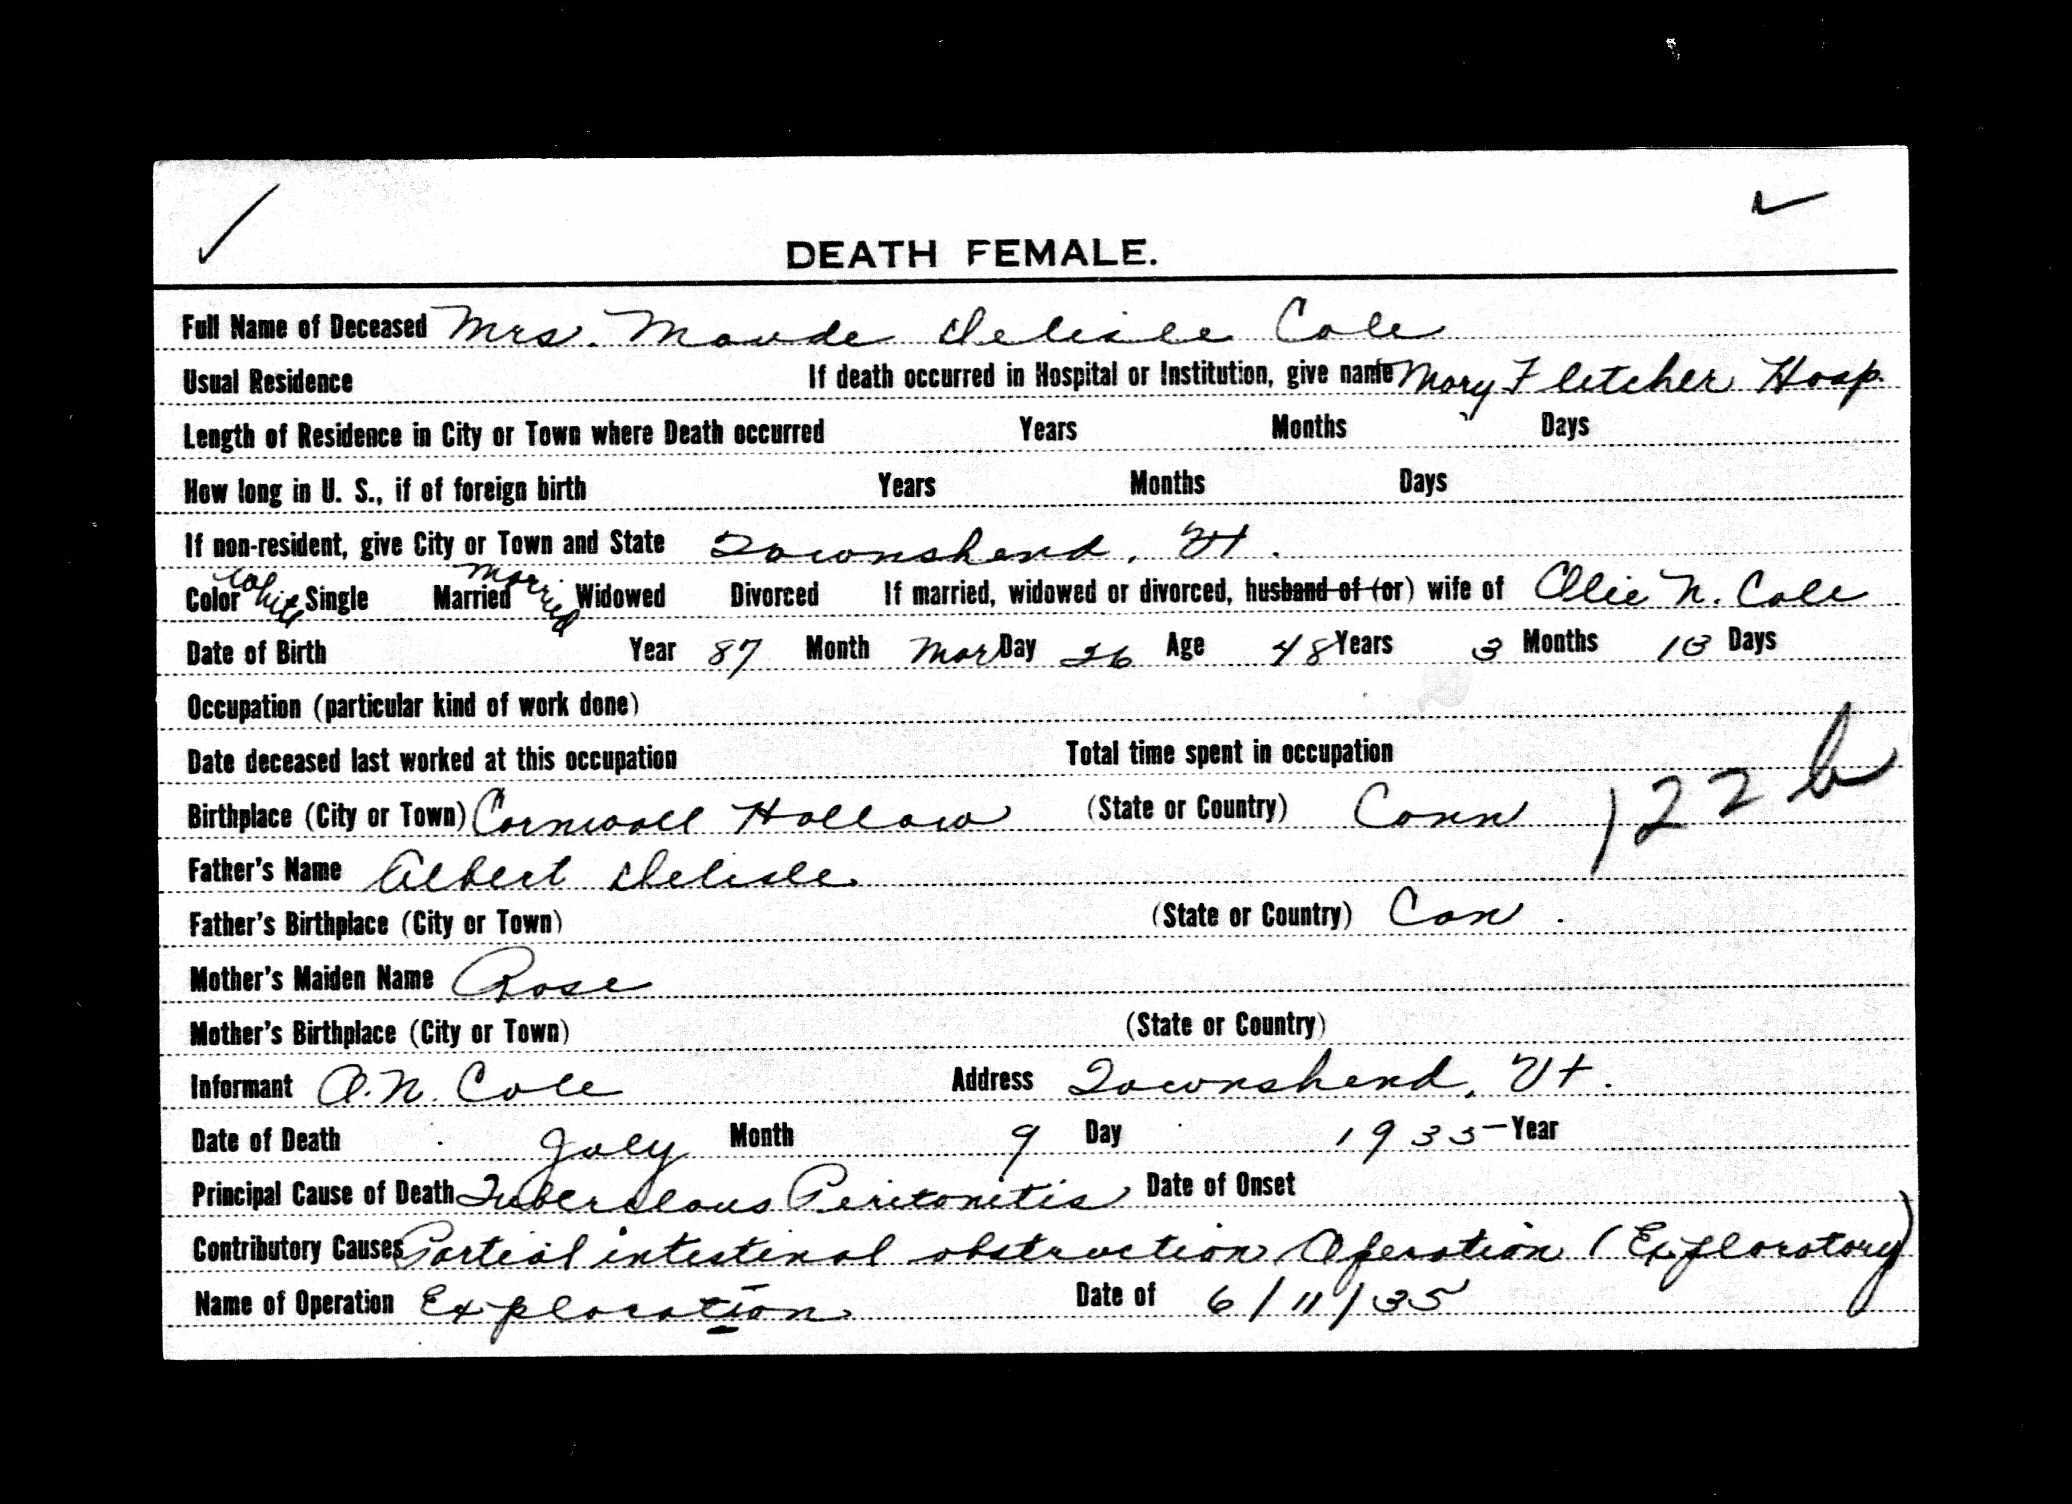 DEATH FEMALE.
Full Name of Deceased Mrs. Maude Delisle Cole
Usual Residence If death occurred in Hospital or Institution, give name Mary Fletcher Hosp.
Length of Residence in City or Town where Death occurred Years Months Days
How long in U. S., if of foreign birth Years Months Days
If non-resident, give City or Town and State Townshend, Vt.
Color White Single Married Married Widowed Divorced If married, widowed or divorced, husband of (or) wife of Ollie N. Cole
Date of Birth Year 87 Month Mar Day 26 Age 48 Years 3 Months 13 Days
Occupation (particular kind of work done)
Date deceased last worked at this occupation Total time spent in occupation
Birthplace (City or Town) Cornwall Hollow (State or Country) Conn 122 b
Father's Name Albert Delisle
Father's Birthplace (City or Town) (State or Country) Con.
Mother's Maiden Name Rose
Mother's Birthplace (City or Town) (State or Country)
Informant O.N. Cole Address Townshend, Vt.
Date of Death July Month 9 Day 1935 Year
Principal Cause of Death Tuberculous Peritonitis Date of Onset
Contributory Causes Partial intestinal obstruction Operation (Exploratory)
Name of Operation Exploration Date of 6/11/35